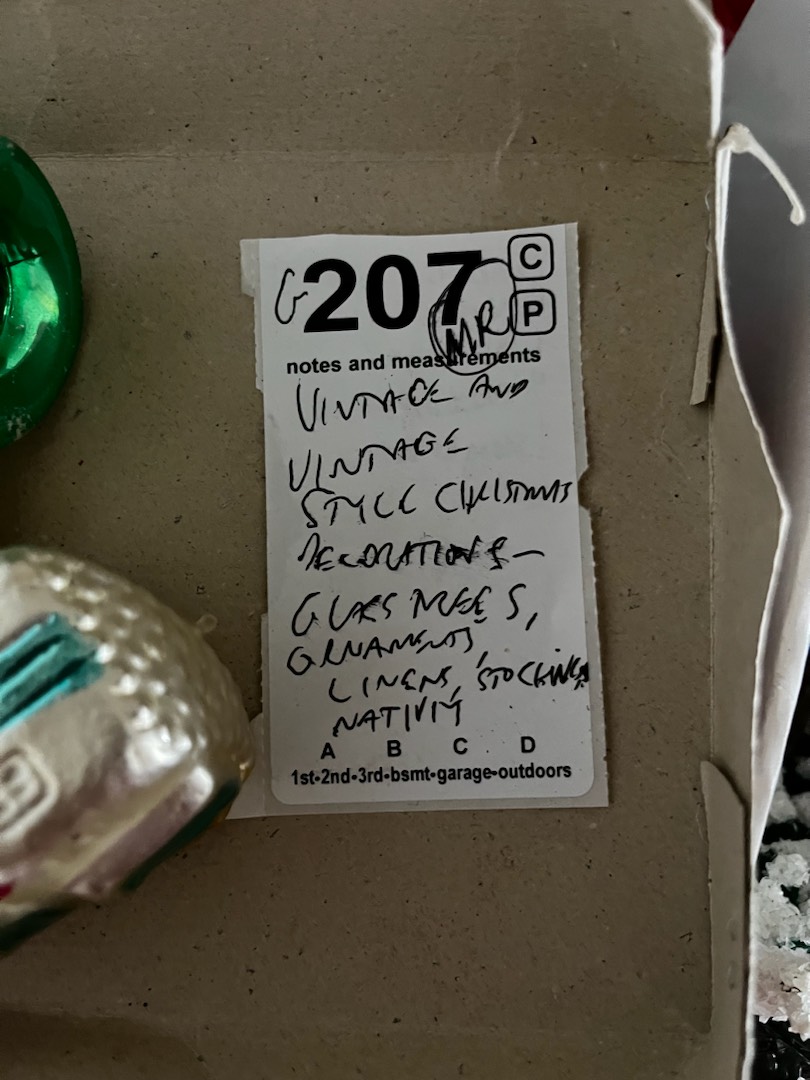 G 207 C
MR P
notes and measurements
VINTAGE AND
VINTAGE
STYLE CHRISTMAS
DECORATIONS-
GLASS TREES,
ORNAMENTS,
LINENS, STOCKINGS
NATIVITY
A B C D
1st-2nd-3rd-bsmt-garage-outdoors